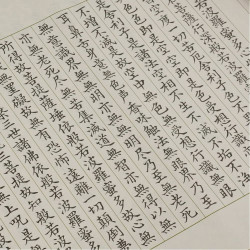 苦厄舍利子色不異空空不
色即是空空即是色受想行識亦復如
舍利子是諸法空相不生不滅不垢不淨
不增不減是故空中無色無受想行識無眼
耳鼻舌身意無色聲香味觸法無眼界乃至
無意識界無無明亦無無明盡乃至無老死
亦無老死盡無苦集滅道無智亦無得以無
所得故菩提薩埵依般若波羅蜜多故心無
罣礙無罣礙故無有恐怖遠離一切顛倒夢
三世諸佛依般若波羅蜜多故
故知般若波羅蜜多
無上呪是